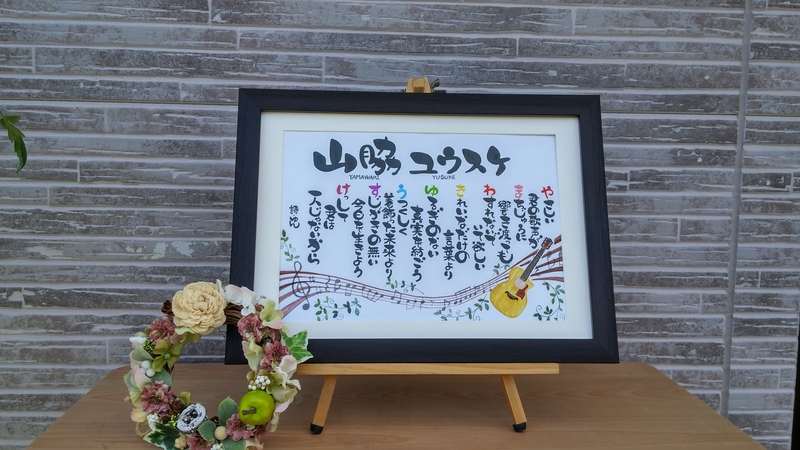 山脇 ユウスケ
YAMAWAKI YUSUKE
やさしい
君の歌声が
まちじゅうに
響き渡っても
わすれないで
いて欲しい
きれいなだけの
言葉より
ゆるぎのない
真実を紡ごう
うつくしく
着飾った未来より
すじがきの無い
今日を生きよう
けっして
君は
一人じゃないから